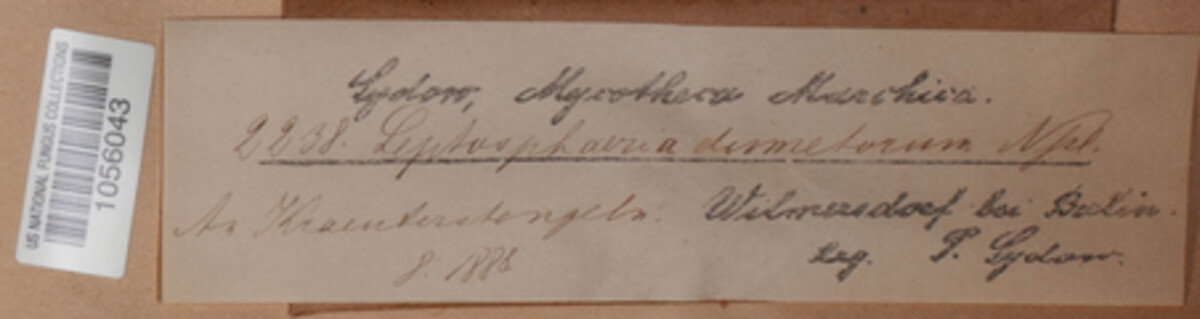 US NATIONAL FUNGUS COLLECTIONS
1056043
Sydow, Mycotheca Marchica.
2238. Leptosphaeria dumetorum Npl.
An Kraeuterstengeln. Wilmersdorf bei Berlin.
8. 1888 Leg. P. Sydow.